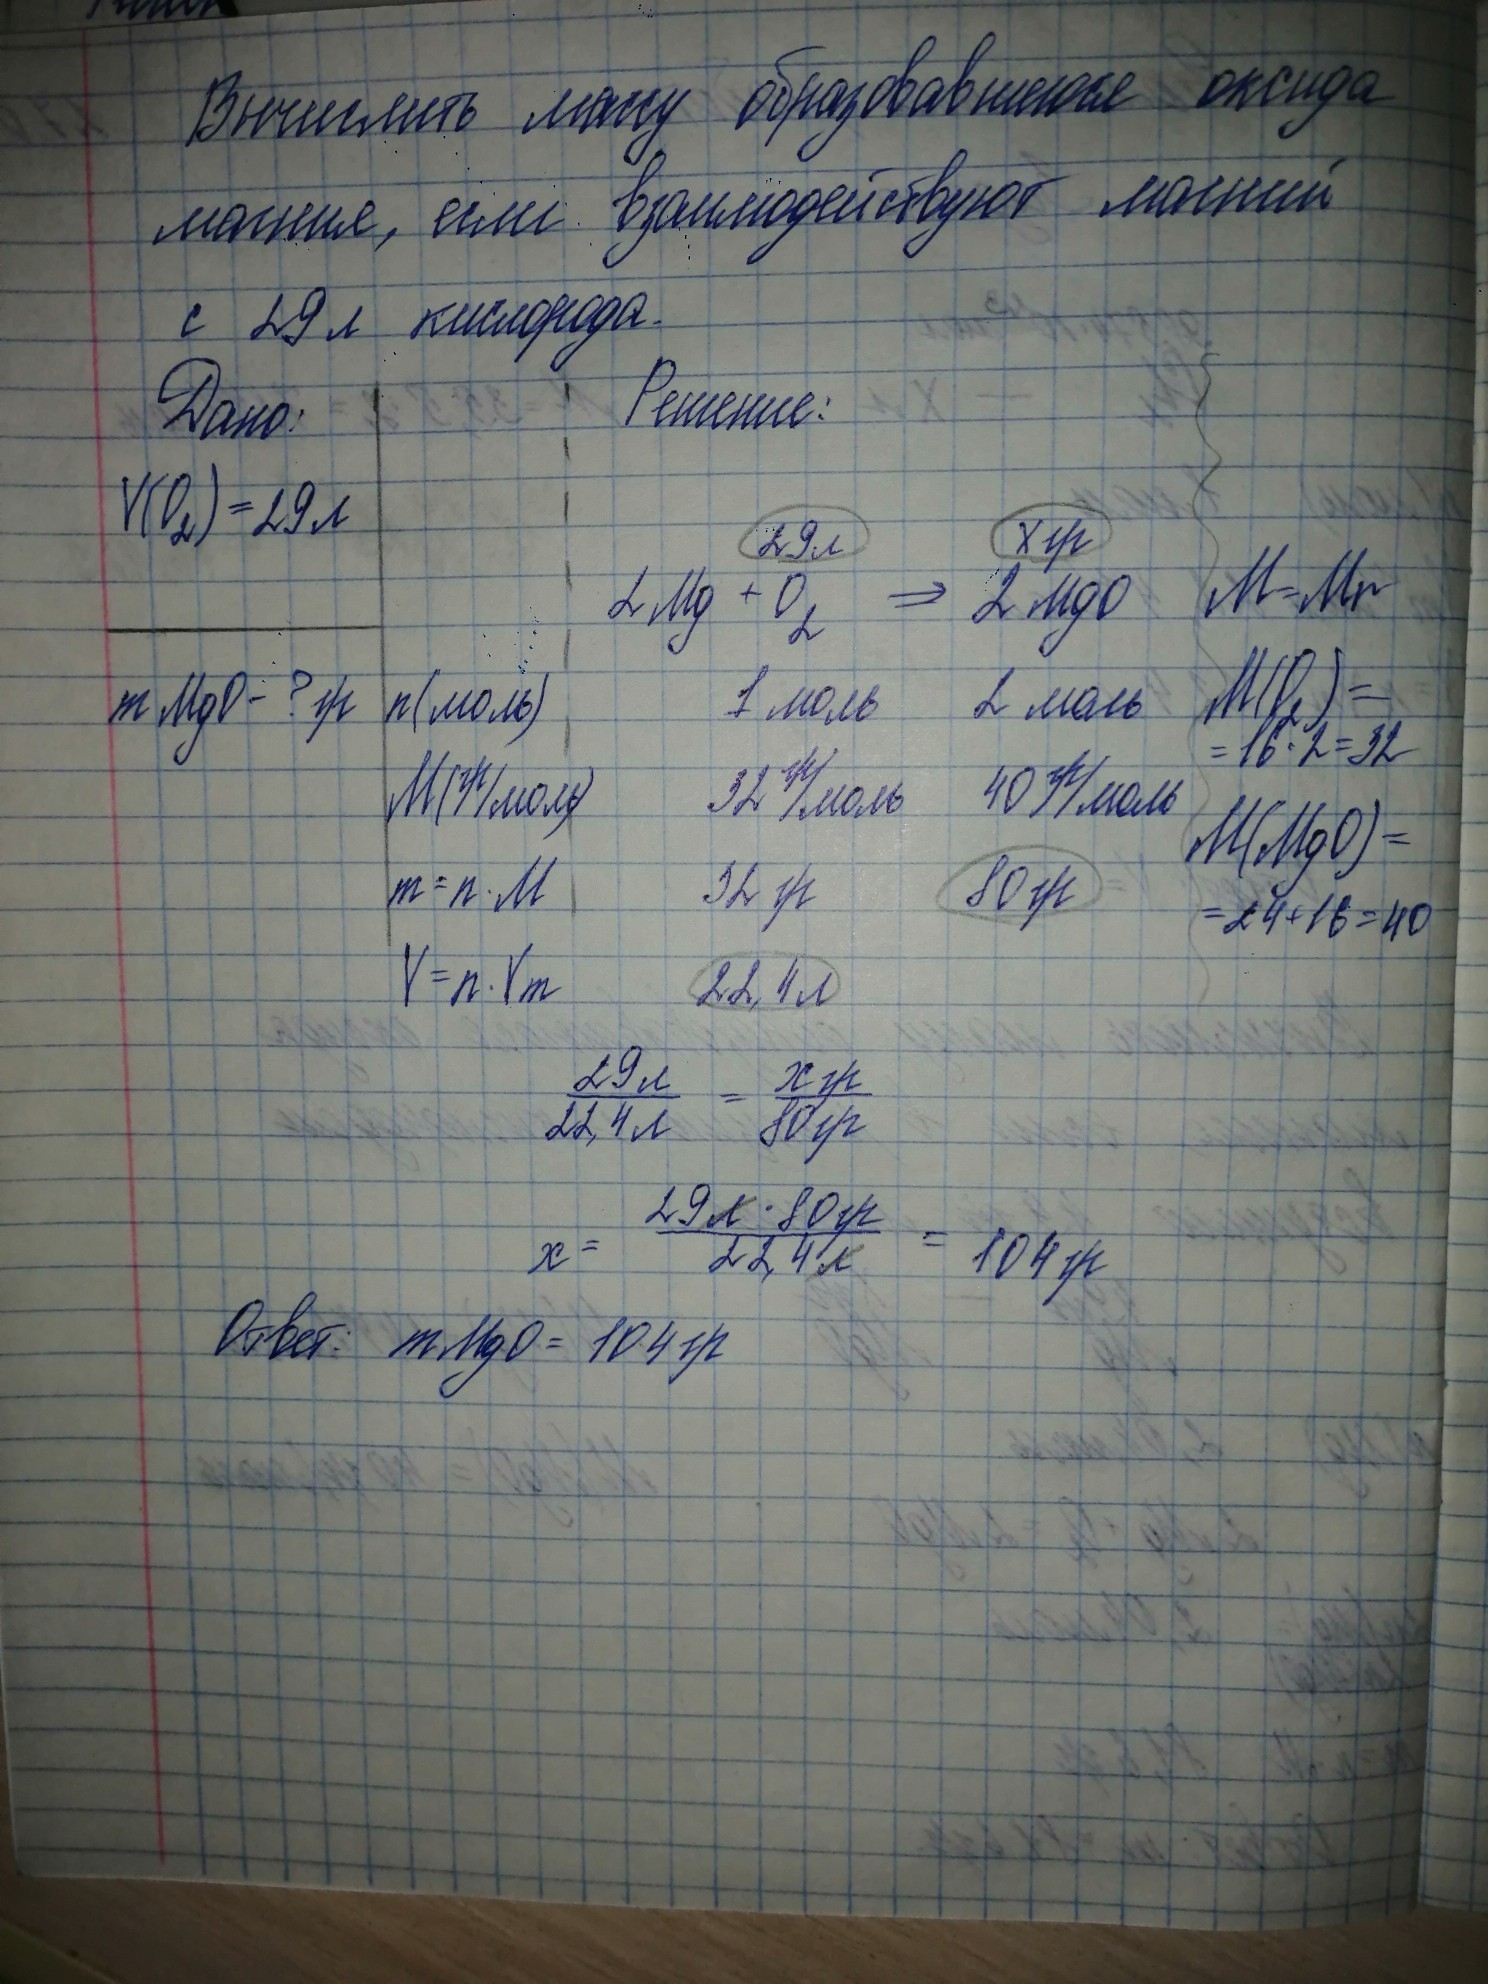 Вычислить массу образовавшегося оксида
магния, если взаимодействуют магний
с 29 л кислорода.
Дано: Решение:
V(O₂) = 29 л
29 л x гр
2 Mg + O₂ ⇒ 2 MgO M = Mr
m MgO - ? гр n (моль) 1 моль 2 моль M(O₂) =
= 16 · 2 = 32
M (гр/моль) 32 гр/моль 40 гр/моль
M(MgO) =
m = n · M 32 гр 80 гр
= 24 + 16 = 40
V = n · Vm 22,4 л
29 л / 22,4 л = x гр / 80 гр
x = 29 л · 80 гр / 22,4 л = 104 гр
Ответ: m MgO = 104 гр